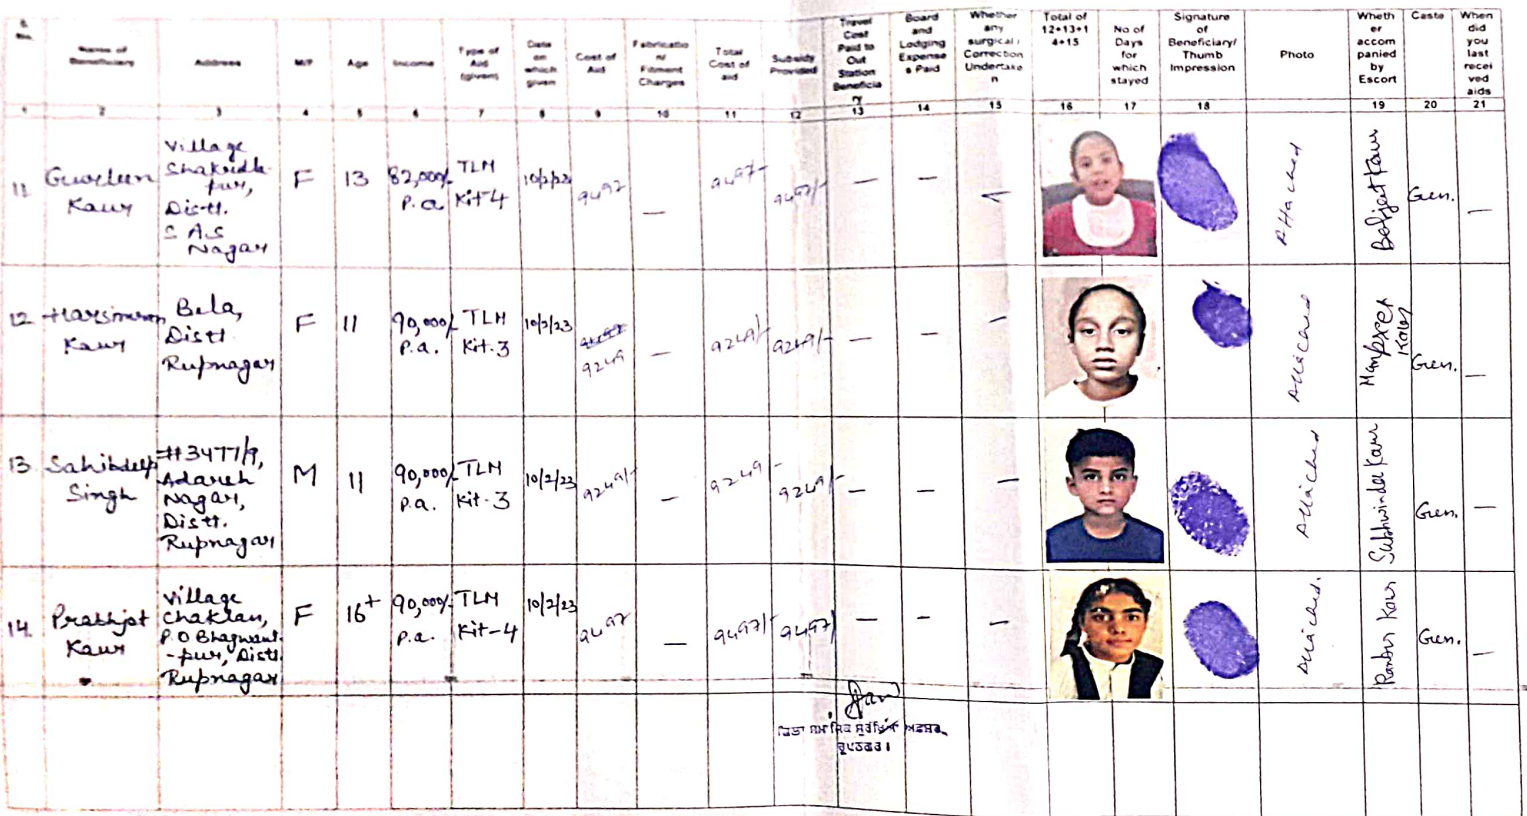 S. No.
Name of Beneficiary
Address
M/F
Age
Income
Type of Aid (given)
Date on which given
Cost of Aid
Fabrication/ Fitment Charges
Total Cost of aid
Subsidy Provided
Travel Cost Paid to Out Station Beneficiary
Board and Lodging Expenses Paid
Whether any surgical / Correction Undertaken
Total of 12+13+14+15
No of Days for which stayed
Signature of Beneficiary/ Thumb Impression
Photo
Whether accompanied by Escort
Caste
When did you last received aids
1 2 3 4 5 6 7 8 9 10 11 12 13 14 15 16 17 18 19 20 21
11. Gurleen Kaur
Village
pur,
Distt.
S A S
Nagar
F 13 82,000/- P.a TLM Kit-4 10/2/23 9497 — 9497/- 9497/- — — — Attached Baljeet Kaur Gen. —
12. Harsimran Kaur
Bela,
Distt
Rupnagar
F 11 90,000/- P.a. TLM Kit-3 10/2/23 9249 — 9249/- 9249/- — — — Attached Kaur Gen. —
13. Sahibdeep Singh
#3477/9,
Adarsh
Nagar,
Distt.
Rupnagar
M 11 90,000/- P.a. TLM Kit-3 10/2/23 9249/- — 9249/- 9249/- — — — Attached Sukhwinder Kaur Gen. —
14. Prabhjot Kaur
Village
Chaklan,
P.O Bhagwant
-pur, Distt.
Rupnagar
F 16+ 90,000/- P.a. TLM Kit-4 10/2/23 9497 — 9497/- 9497/- — — — Attached. Kaur Gen. —
ਜ਼ਿਲਾ ਸਮਾਜਿਕ ਸੁਰੱਖਿਆ ਅਫਸਰ,
ਰੂਪਨਗਰ।